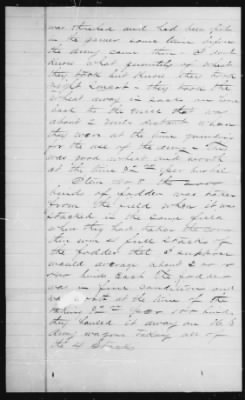 was thrashed and had been put
in the garner some time before
the army came there - I dont
know what quantity of wheat
they took but know they took
eight loads - they took the
wheat away in sacks
back to the mill that was
about 2 miles distant where
they were at the time grinding
for the use of the army - This
was good wheat and worth
at the time per bushel
Item No 8 the 2000
binds of fodder was taken
from the field where it was
stacked in the same field
where they had taken the corn
there were 4 full stacks of
the fodder that I suppose
would average about 500
binds each the fodder
was in fine condition and
was worth at the time of the
taking per 100 binds
they hauled it away on the
army wagons taking all of
the 4 stacks